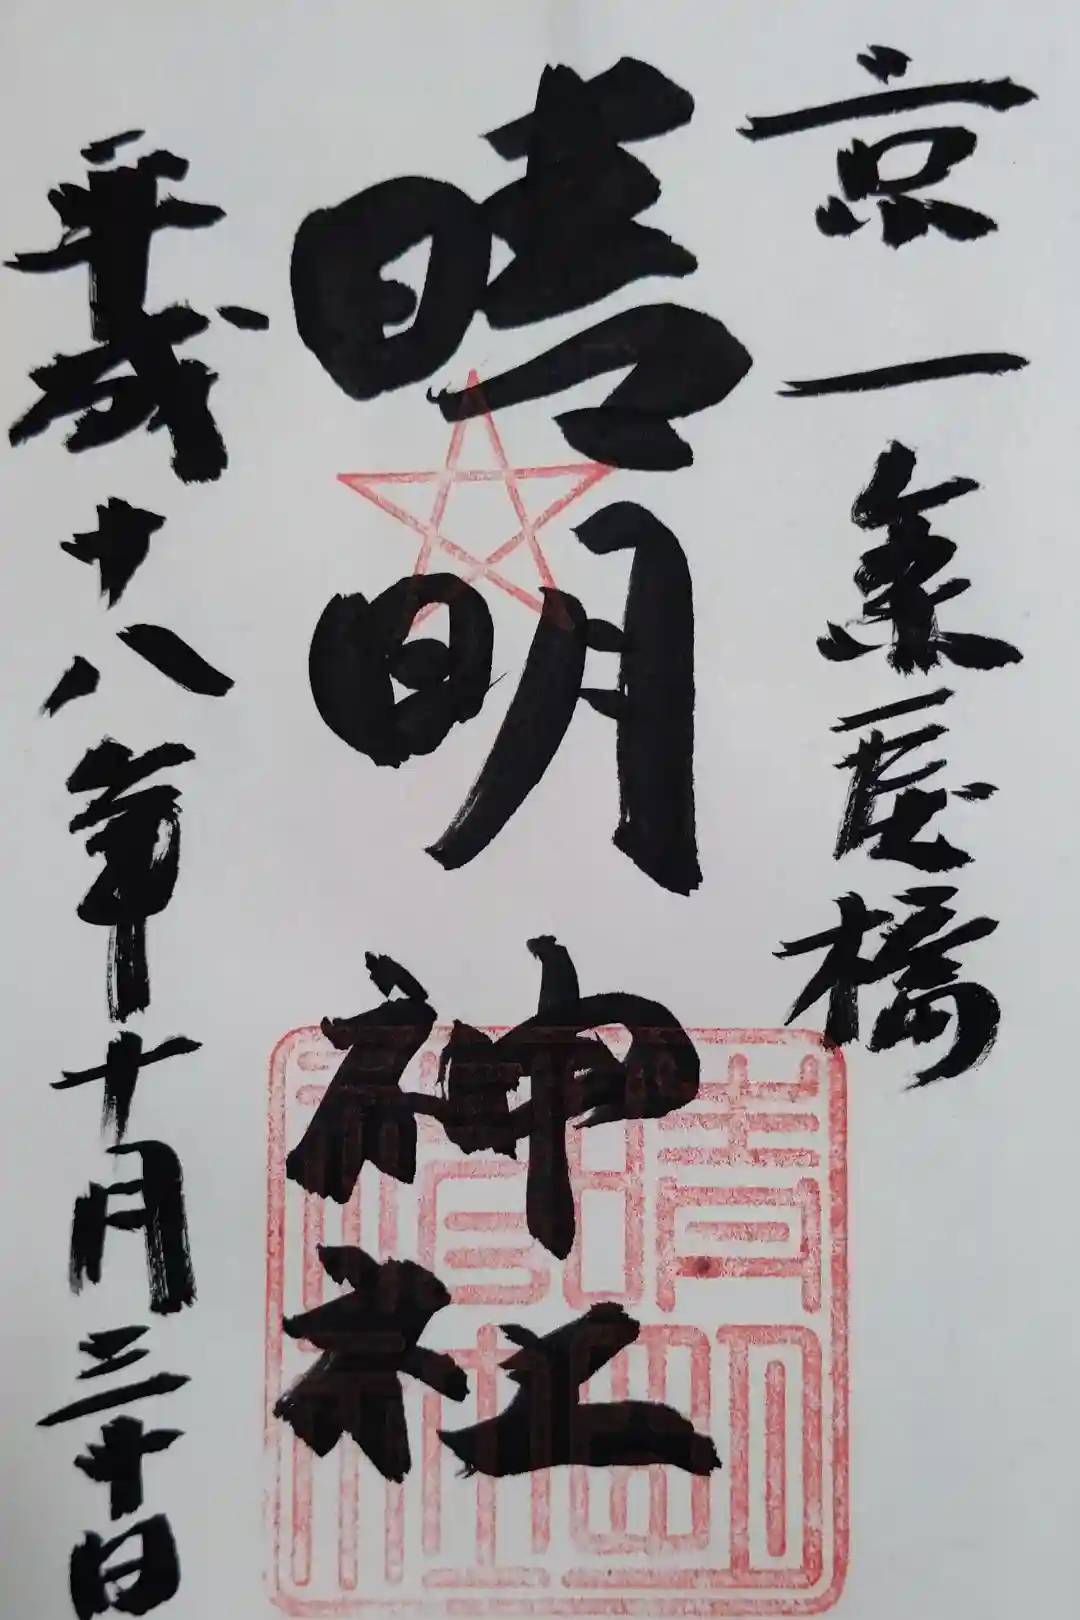 京一条戻橋
晴明神社
晴明神社
平成十八年十月三十日